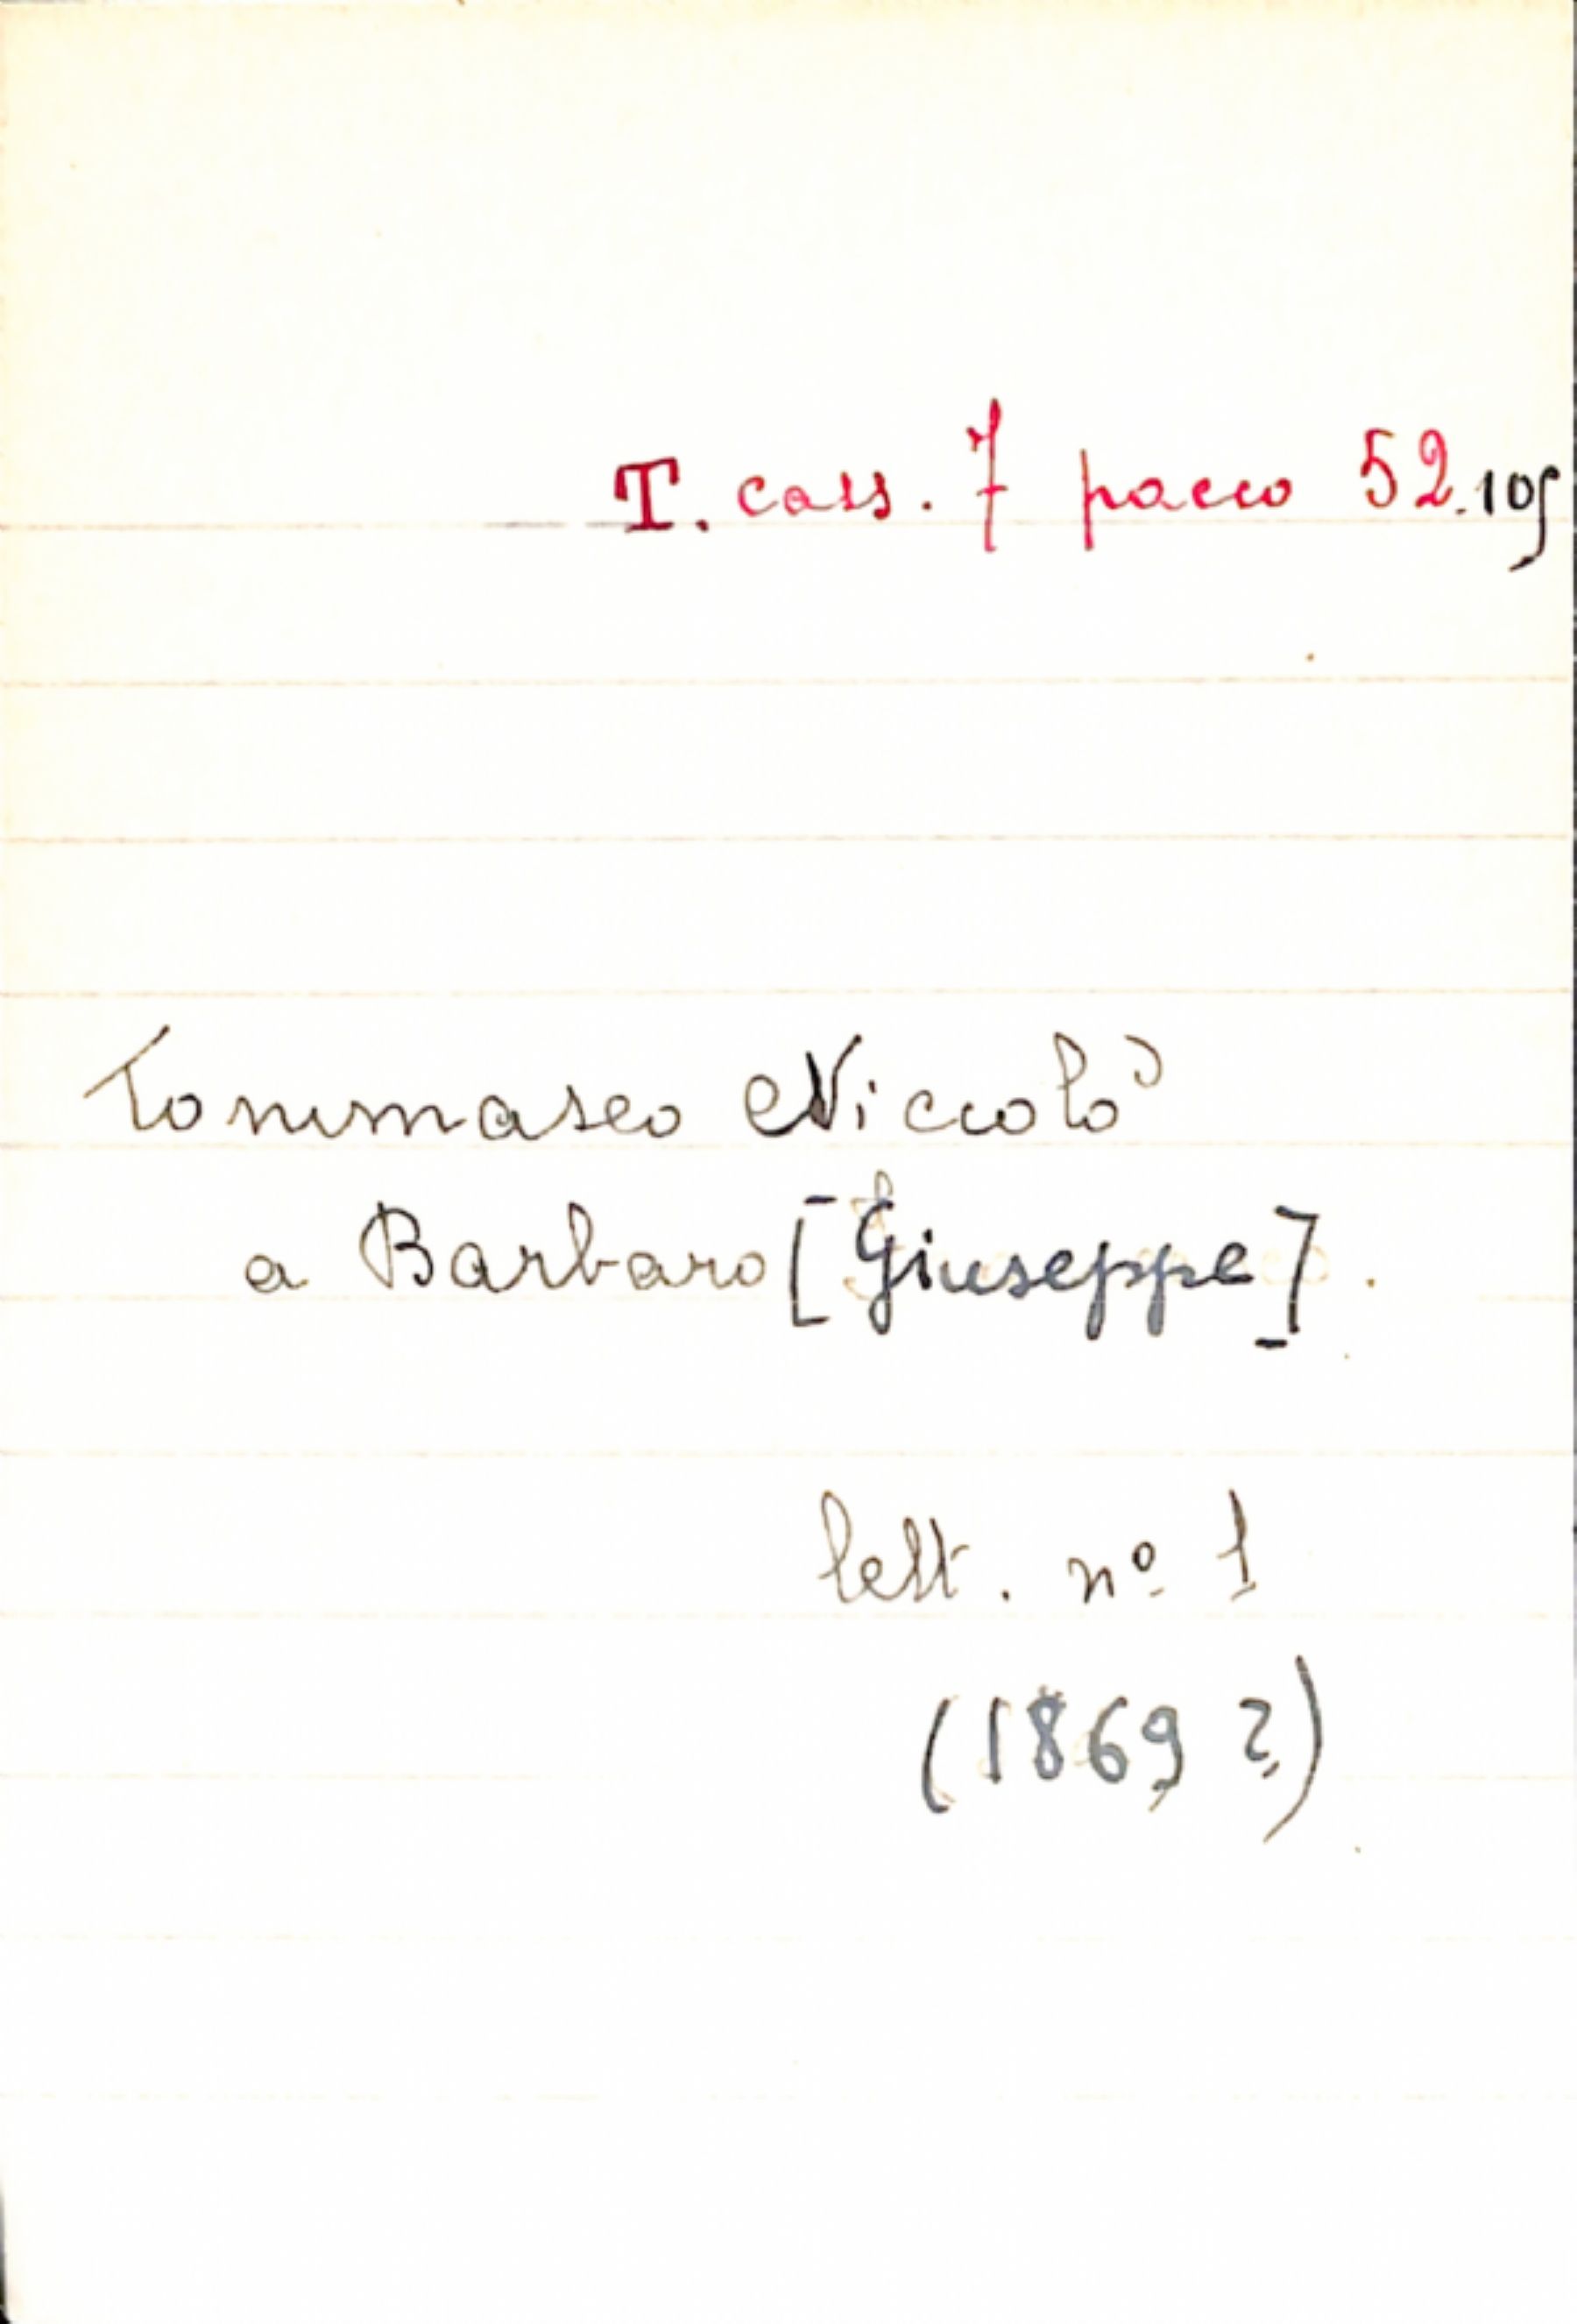 T. cass. 7 pacco 52.105
Tommaseo Niccolò
a Barbaro [Giuseppe].
lett. nº 1
(1869 ?)